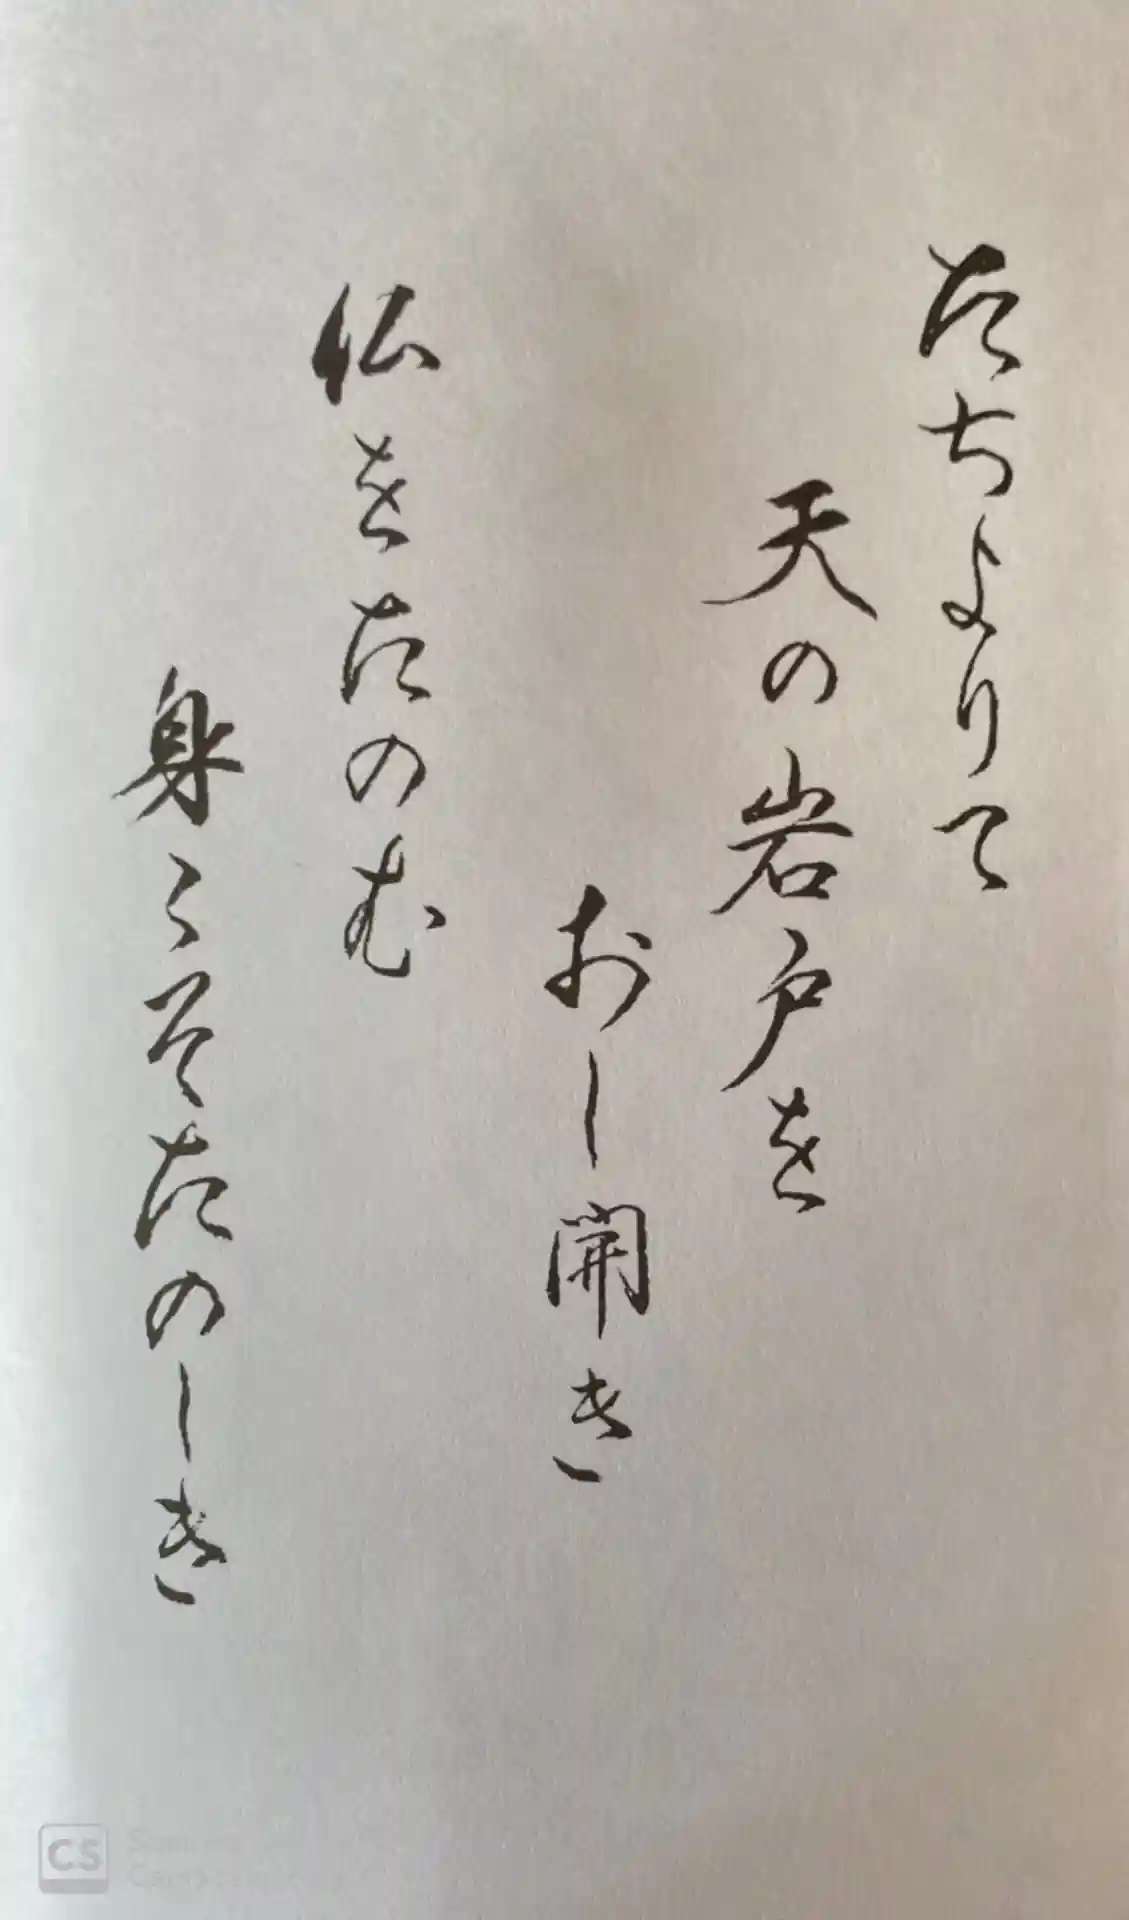 たちよりて
天の岩戸を
おし開き
仏をたのむ
身こそたのしき
CS